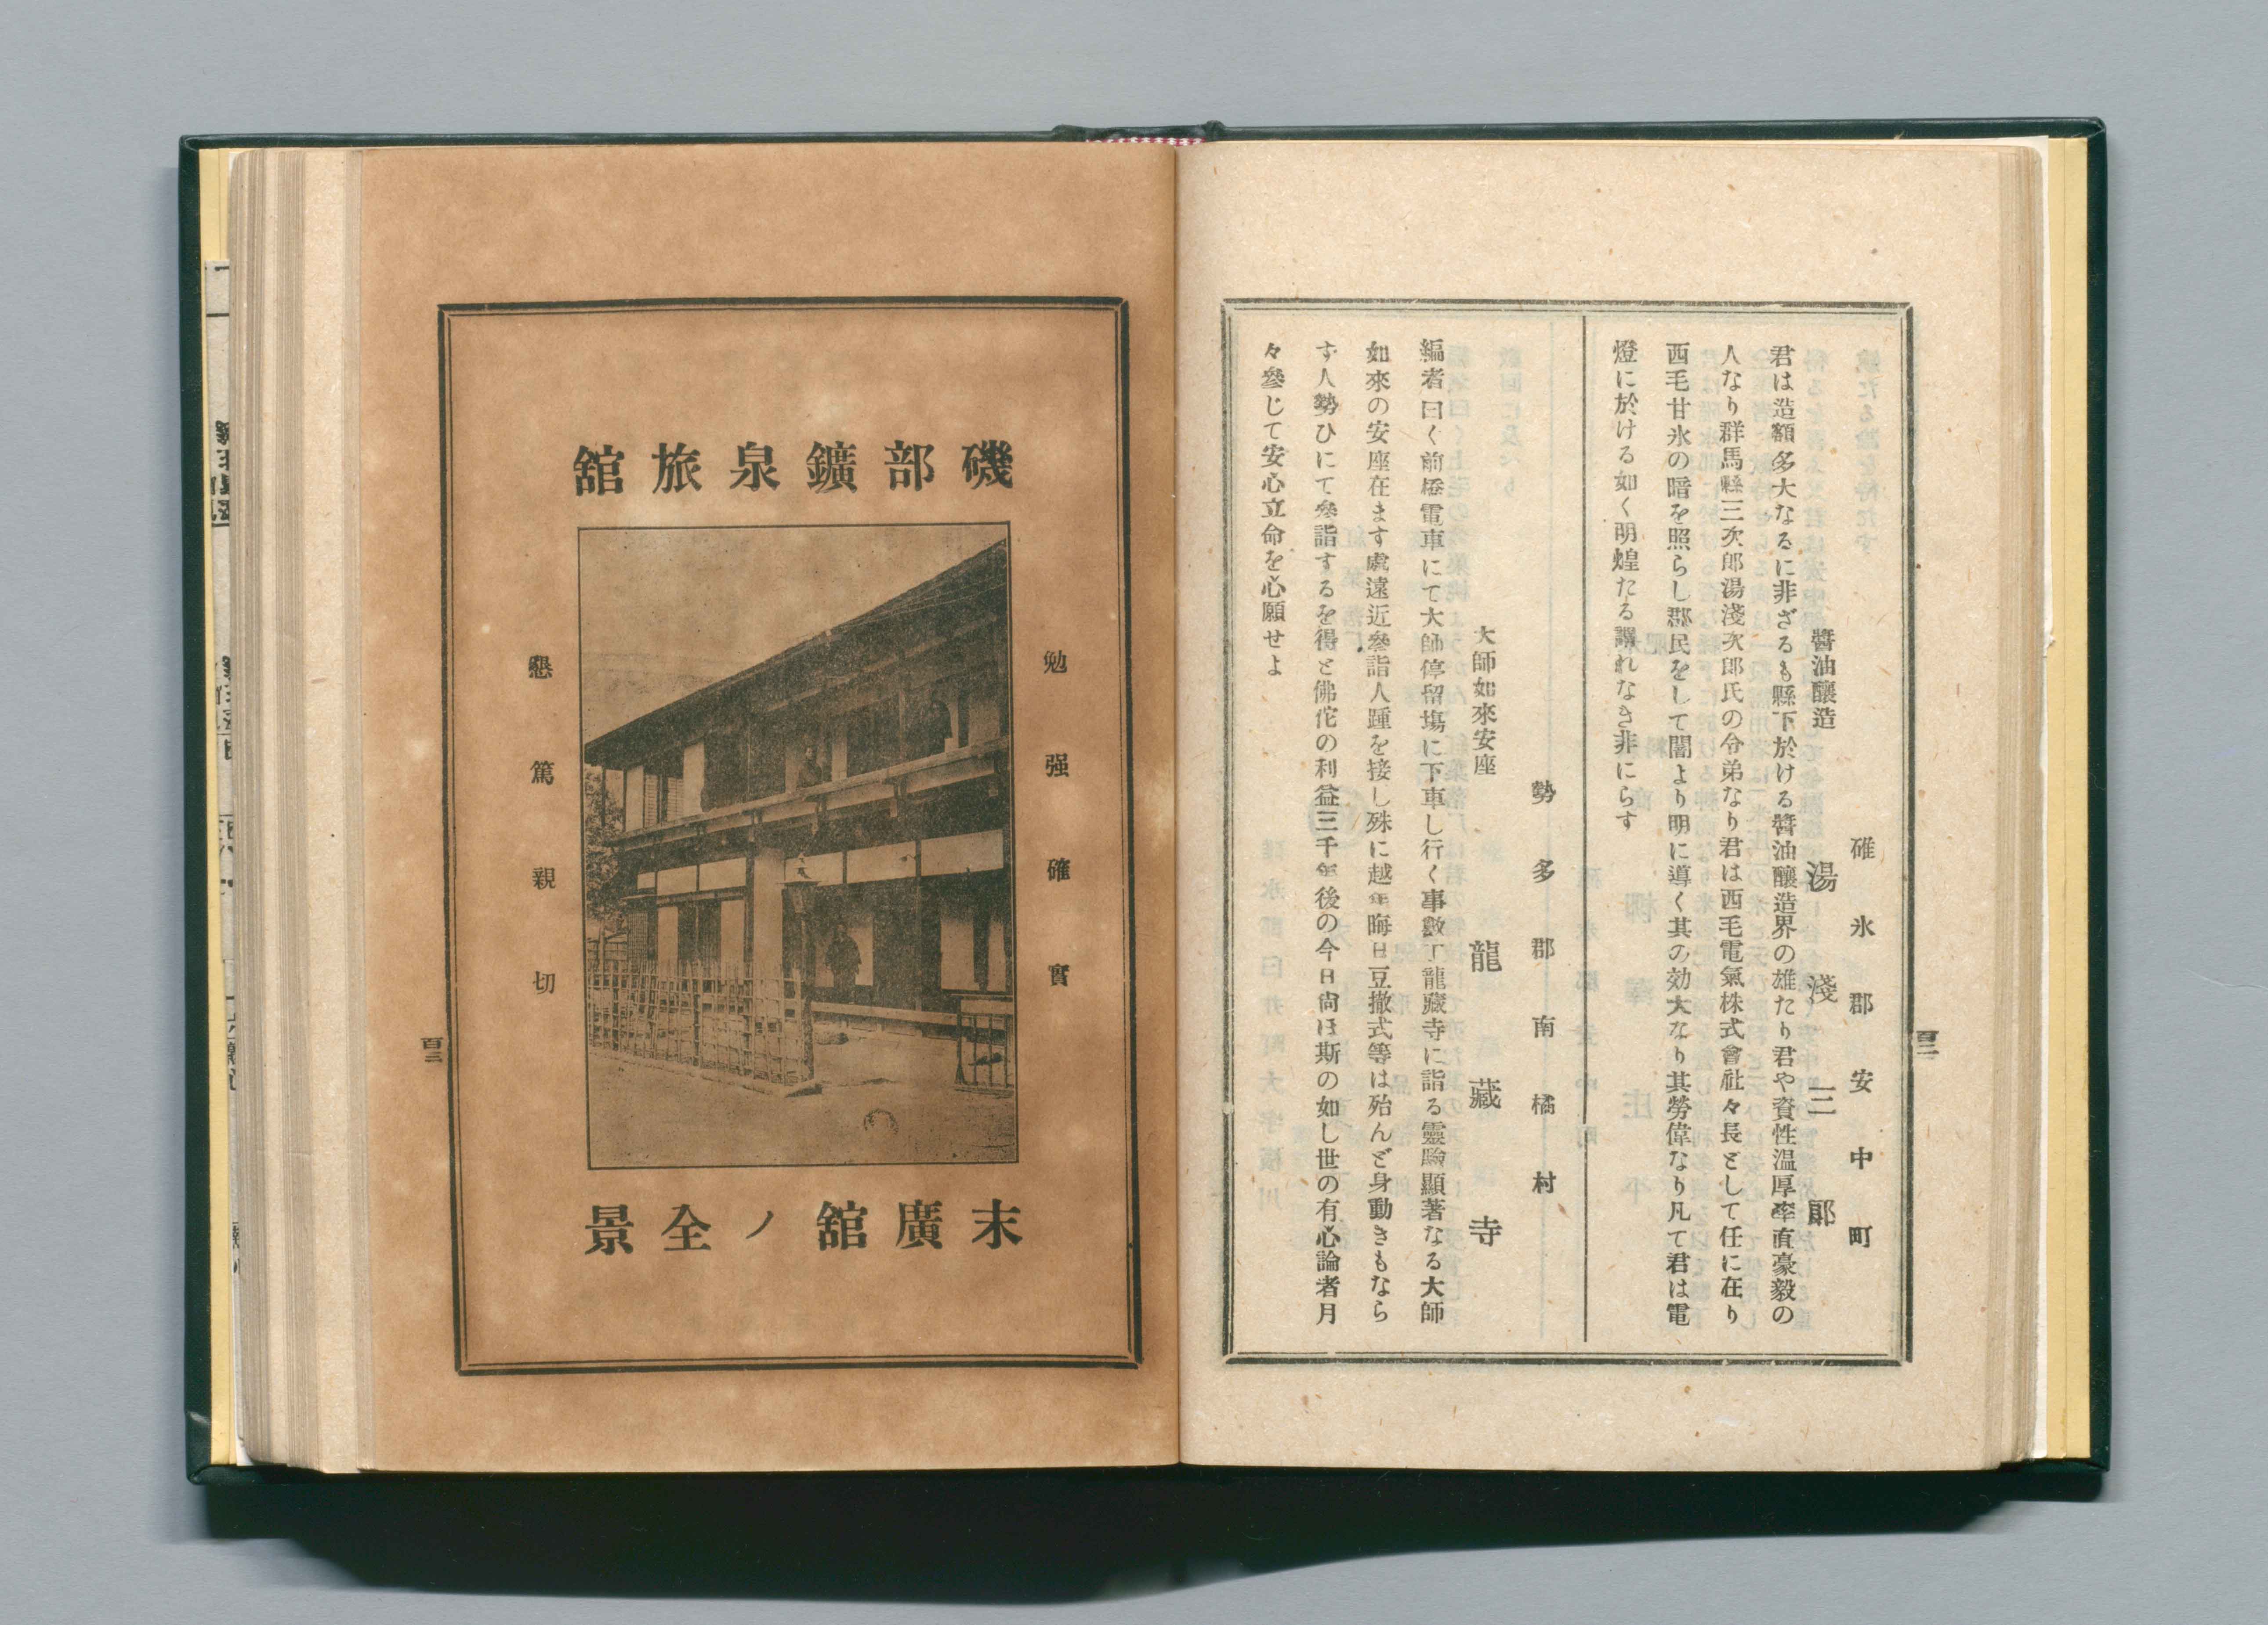 碓氷郡安中町
醬油釀造　湯淺三郎
君は造額多大なるに非ざるも縣下於ける醬油釀造界の雄たり君や資性溫厚率直豪毅の
人なり群馬縣三次郎湯淺次郎氏の令弟なり君は西毛電氣株式會社々長として任に在り
西毛甘氷の暗を照らし郡民をして闇より明に導く其の効大なり其勞偉なり凡て君は電
燈に於ける如く明煌たる譟れなき非にらす
勢多郡南橘村
大師如來安座　龍藏寺
編者曰く前橋電車にて大師停留塲に下車し行く事數丁龍藏寺に詣る靈驗顯著なる大師
如來の安座在ます處遠近參詣人踵を接し殊に越年晦日豆撤式等は殆んど身動きもなら
す人勢ひにて參詣するを得と佛陀の利益三千年後の今日尙ほ斯の如し世の有心論者月
々參じて安心立命を心願せよ
百二
磯部鑛泉旅舘
勉强確實
懇篤親切
末廣舘ノ全景
百三